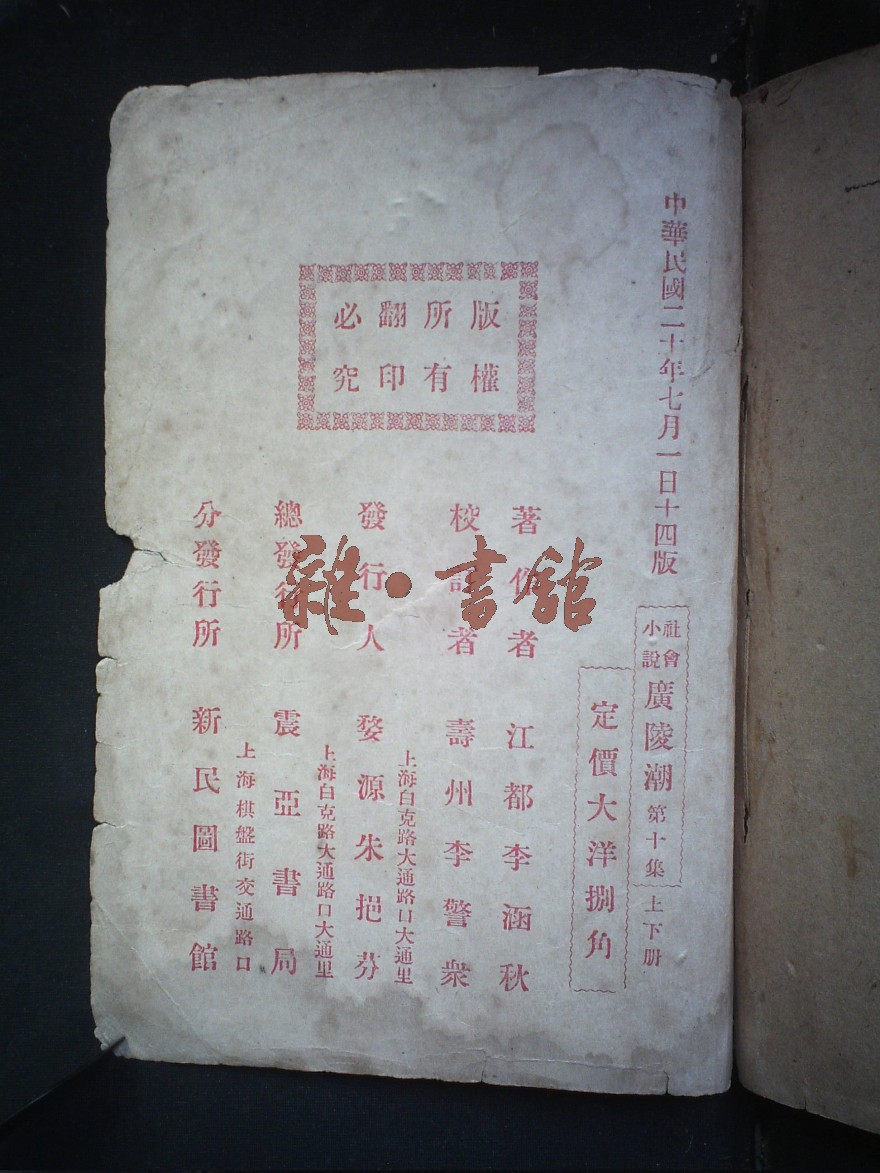 中華民國二十年七月一日十四版
社會
小說
廣陵潮 第十集 上下册
定價大洋捌角
版權
所有
翻印
必究
著作者 江都李涵秋
校訂者 壽州李警衆
上海白克路大通路口大通里
發行人 婺源朱挹芬
上海白克路大通路口大通里
總發行所 震亞書局
上海棋盤街交通路口
分發行所 新民圖書館
雜·書館